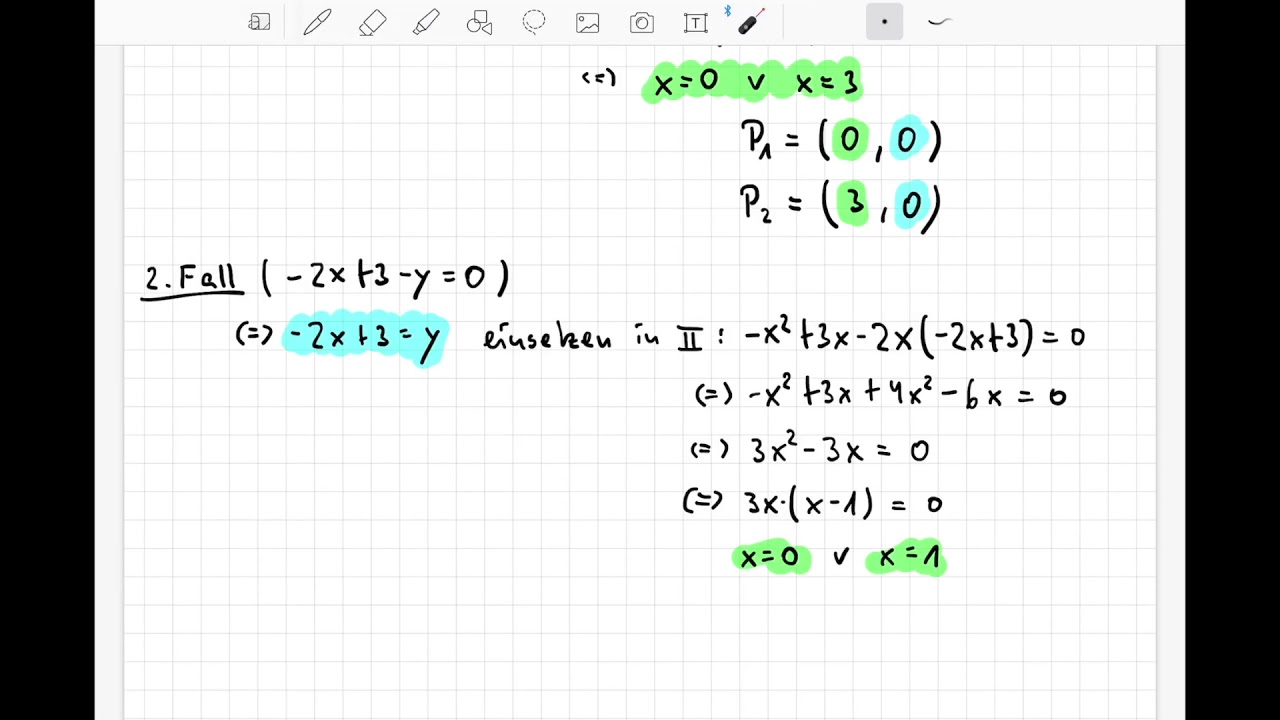 T
(=) x=0 v x=3
P₁ = (0,0)
P₂ = (3,0)
2. Fall (-2x+3-y=0)
(=) -2x+3=y einsetzen in II: -x²+3x-2x(-2x+3)=0
(=) -x²+3x+4x²-6x=0
(=) 3x²-3x=0
(=) 3x·(x-1)=0
x=0 v x=1